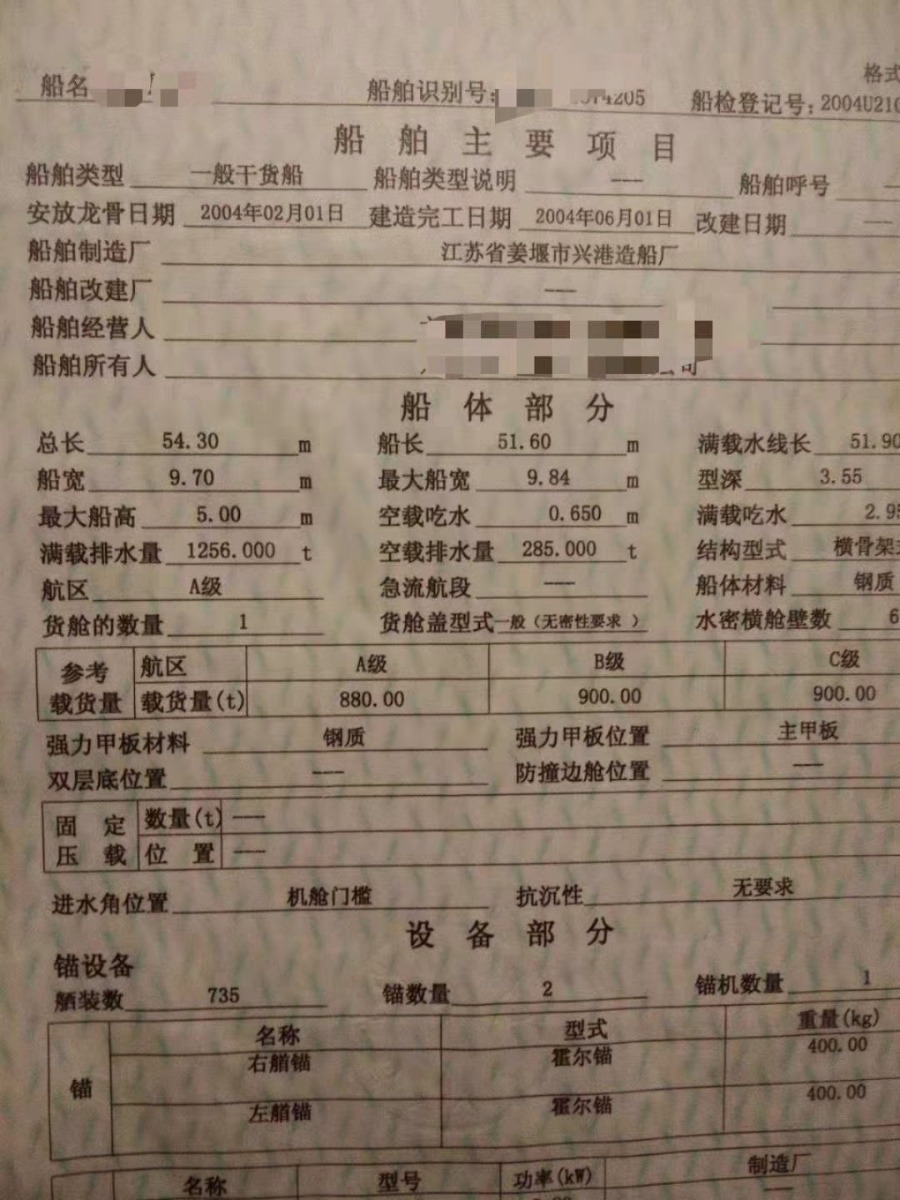 格式
船名 船舶识别号: 4205 船检登记号: 2004U210
船舶主要项目
船舶类型 一般干货船 船舶类型说明 --- 船舶呼号
安放龙骨日期 2004年02月01日 建造完工日期 2004年06月01日 改建日期 ---
船舶制造厂 江苏省姜堰市兴港造船厂
船舶改建厂 ---
船舶经营人
船舶所有人 公司
船体部分
总长 54.30 m 船长 51.60 m 满载水线长 51.90
船宽 9.70 m 最大船宽 9.84 m 型深 3.55
最大船高 5.00 m 空载吃水 0.650 m 满载吃水 2.95
满载排水量 1256.000 t 空载排水量 285.000 t 结构型式 横骨架式
航区 A级 急流航段 --- 船体材料 钢质
货舱的数量 1 货舱盖型式 一般（无密性要求 ） 水密横舱壁数 6
参考 航区 A级 B级 C级
载货量 载货量(t) 880.00 900.00 900.00
强力甲板材料 钢质 强力甲板位置 主甲板
双层底位置 --- 防撞边舱位置 ---
固定 数量(t) ---
压载 位置 ---
进水角位置 机舱门槛 抗沉性 无要求
设备部分
锚设备
舾装数 735 锚数量 2 锚机数量 1
名称 型式 重量(kg)
锚 右艏锚 霍尔锚 400.00
左艏锚 霍尔锚 400.00
名称 型号 功率(kW) 制造厂